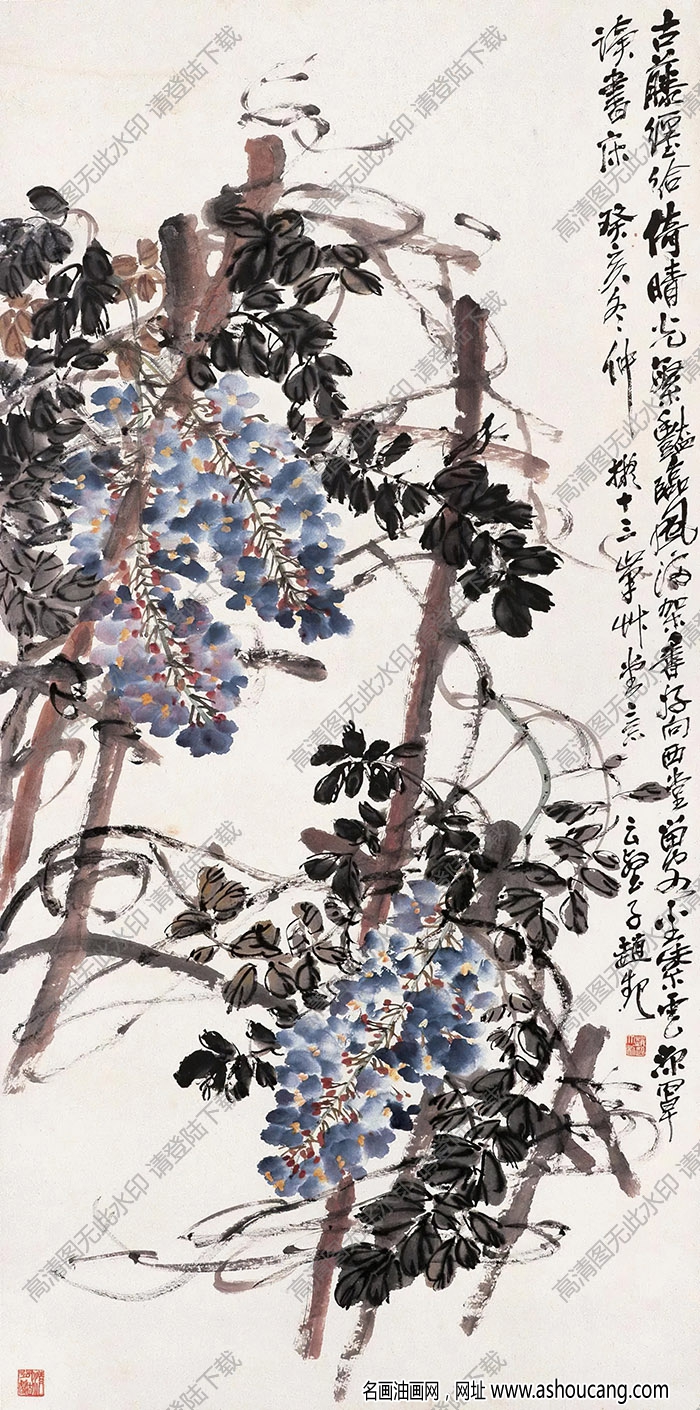 古藤縆络倚晴光繁豔临风满架香好向西堂学不尽紫云深覃
读书床 癸亥冬仲 拟十三峰艸堂意
云壑子赵起
高清图无此水印 请登陆下载
名画油画网，网址 www.ashoucang.com